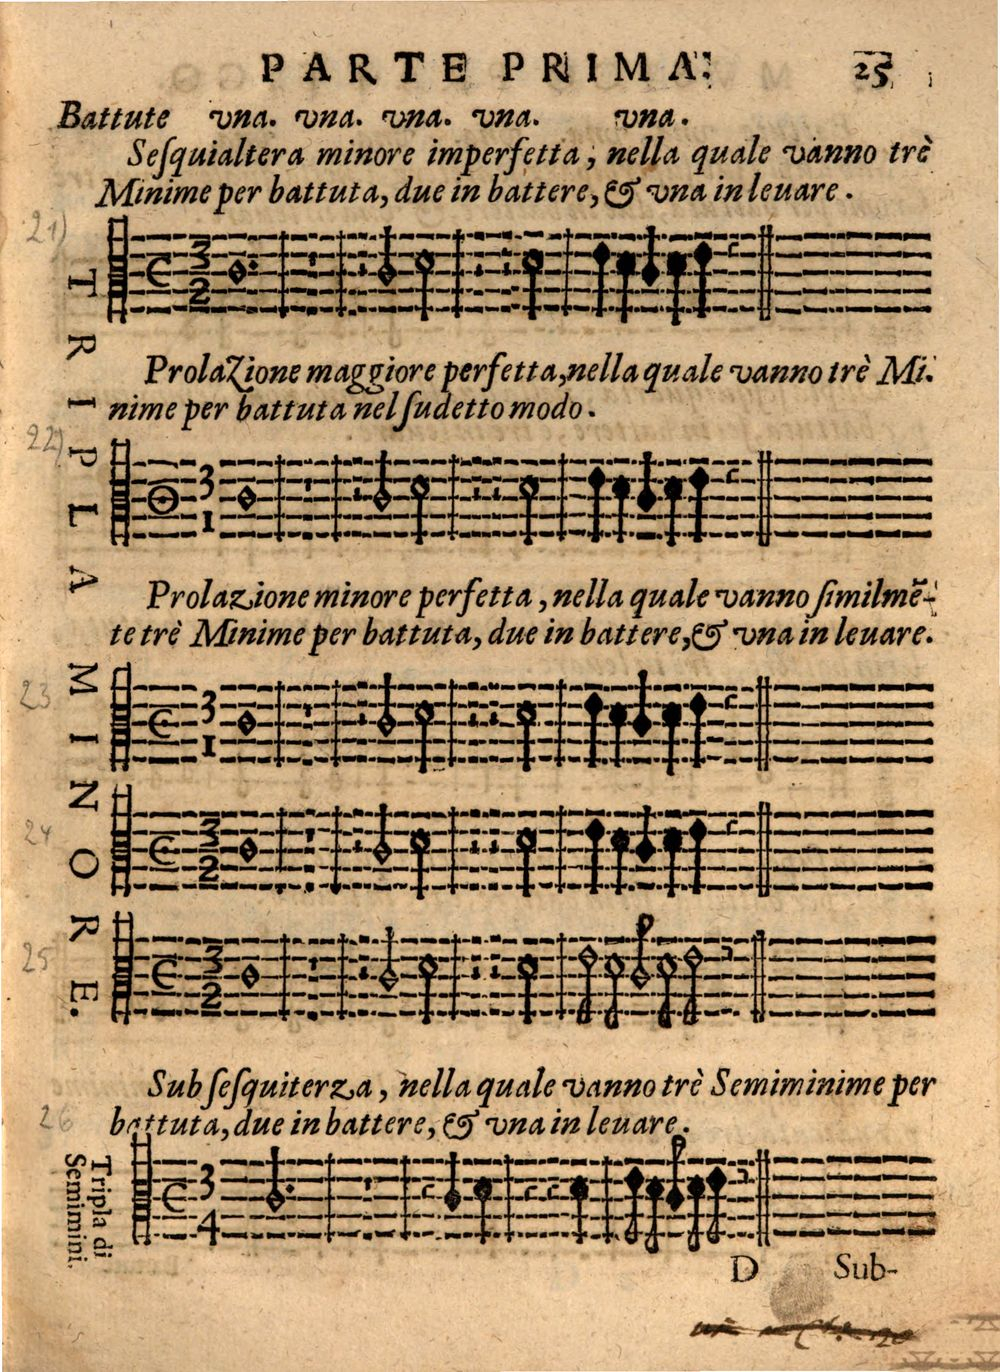 PARTE PRIMA. 25
Battute vna. vna. vna. vna. vna.
Seſquialtera minore imperfetta, nella quale vanno trè
Minime per battuta, due in battere, & vna in leuare.
21)
3
2
TRIPLA MINORE.
Prolazione maggiore perfetta, nella quale vanno trè Mi-
nime per battuta nel ſudetto modo.
22)
3
1
Prolazione minore perfetta, nella quale vanno ſimilmẽ-
te trè Minime per battuta, due in battere, & vna in leuare.
23
3
1
24
3
2
25
3
2
Sub ſeſquiterza, nella quale vanno trè Semiminime per
26
battuta, due in battere, & vna in leuare.
Tripla di
Semimini.
3
4
D Sub-